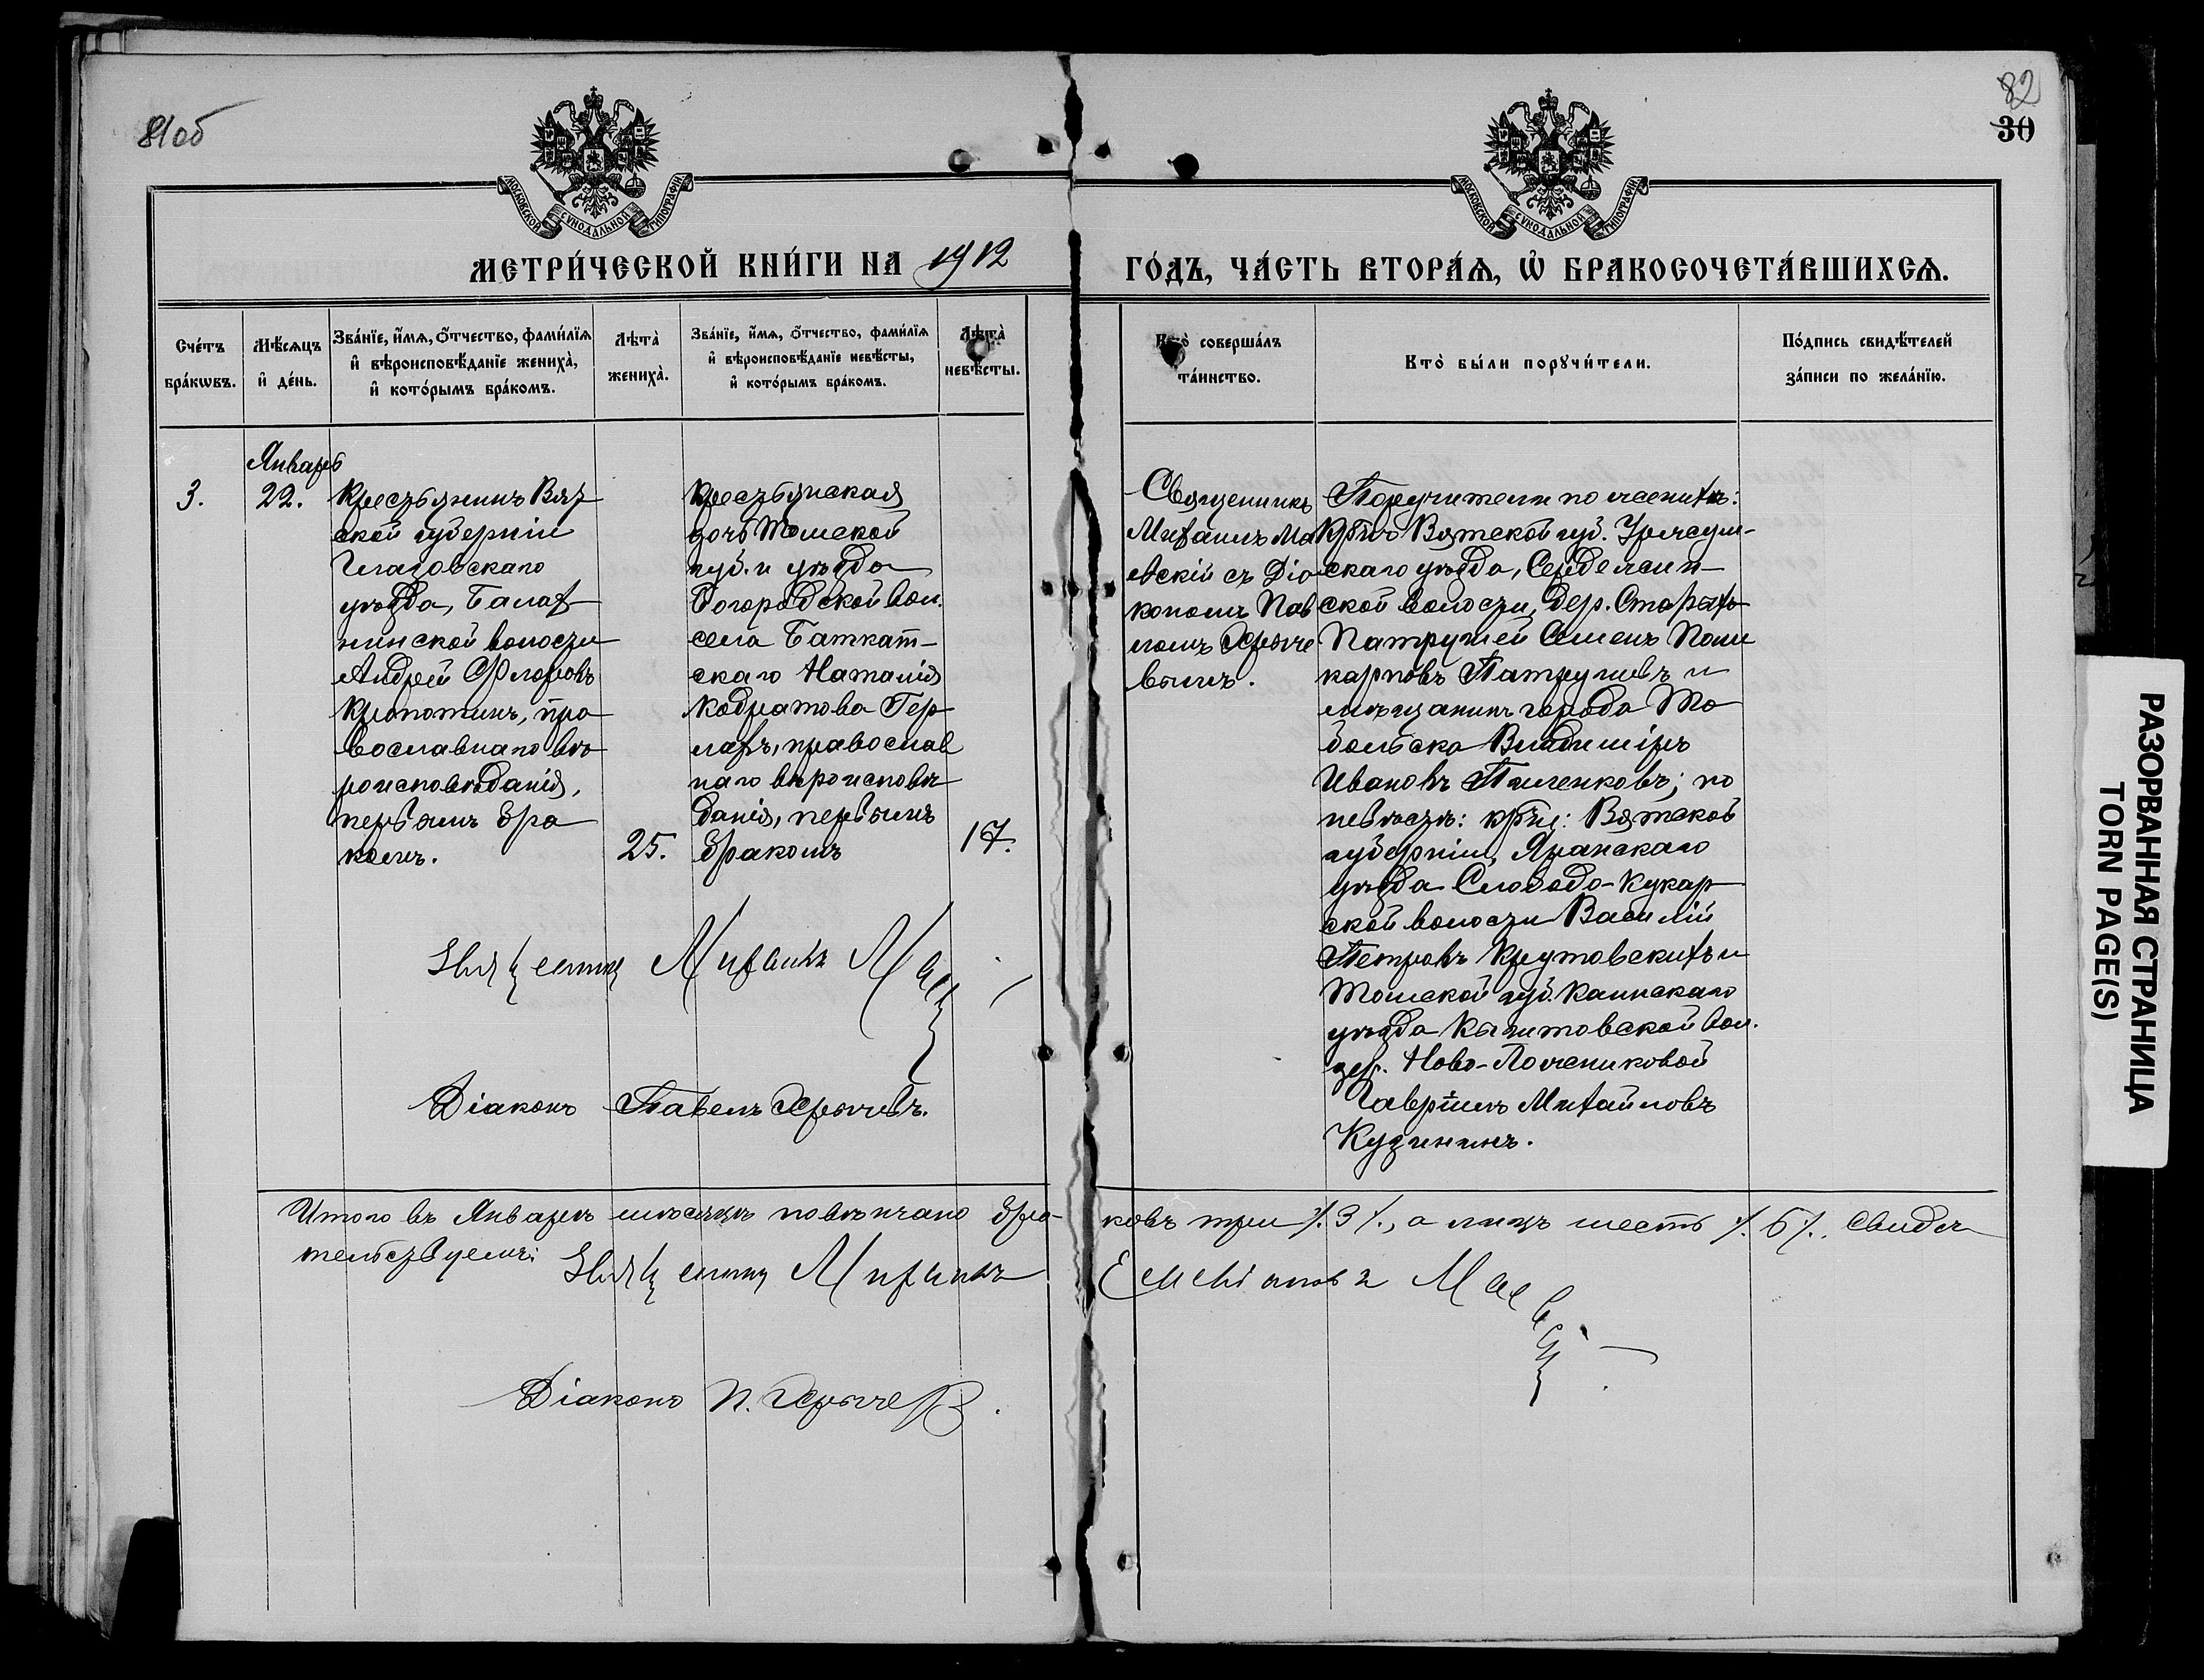 81об
82
30
МОСКОВСКОЙ СѴНОДАЛЬНОЙ ТИПОГРАФІИ
МОСКОВСКОЙ СѴНОДАЛЬНОЙ ТИПОГРАФІИ
МЕТРИ́ЧЕСКОЙ КНИ́ГИ НА 1912
ГО́ДЪ, ЧА́СТЬ ВТОРА́Ѧ, Ѡ҆ БРАКОСОЧЕТА́ВШИХСѦ.
Сче́тъ
бра́кѡвъ.
Мѣ́сѧцъ
и҆ де́нь.
Зва́нїе, и҆́мѧ, ѻ҆́тчество, фами́лїѧ
и҆ вѣроисповѣ́данїе жениха̀,
и҆ кото́рымъ бра́комъ.
Лѣта̀
жениха̀.
Зва́нїе, и҆́мѧ, ѻ҆́тчество, фами́лїѧ
и҆ вѣроисповѣ́данїе невѣ́сты,
и҆ кото́рымъ бра́комъ.
Лѣта̀
невѣ́сты.
Кто̀ соверша́лъ
та́инство.
Кто̀ бы́ли порꙋчи́тели.
По́дпись свидѣ́телей
за́писи по жела́нїю.
Январь
3.
22.
Крестьянинъ Вят
ской губерніи
Глазовскаго
уѣзда, Балах
нинской волости
Андрей Флоровъ
Кропотинъ, пра
вославнаго вѣ
роисповѣданія,
первымъ бра
комъ.
25.
Крестьянская
дочь Томской
губ. и уѣзда
Богородской вол.
села Баткат-
скаго Наталія
Кодратова Гер
лахъ, православ
наго вѣроисповѣ
данія, первымъ
бракомъ
17.
Священникъ
Михаилъ Ма
евскій съ Діа
кономъ Пав
ломъ Хрыче
вымъ.
Поручители по женихѣ:
Кр-нъ Вятской губ. Уржум-
скаго уѣзда, Сердежин-
ской волости, дер. Старыхъ
Патрушей Семенъ Поли
карповъ Патрушевъ и
мѣщанинъ города То
больска Владиміръ
Ивановъ Пиленковъ; по
невѣстѣ: кр-не: Вятской
губерніи, Яранскаго
уѣзда Слободо-Кукар
ской волости Василій
Петровъ Крутовскихъ и
Томской губ. Каинскаго
уѣзда Кыштовской вол.
дер. Ново-Ложниковой
Гавріилъ Михайловъ
Кузнинъ.
Священникъ Михаилъ
Діаконъ Павелъ Хрычевъ.
Итого въ Январѣ мѣсяцѣ повѣнчано бра-
ковъ три ⁒ 3 ⁒, а лицъ шесть ⁒ 6 ⁒. Свидѣ
тельствуемъ:
Священникъ Михаилъ Маевскій
Діаконъ П. Хрычевъ.
РАЗОРВАННАЯ СТРАНИЦА
TORN PAGE(S)